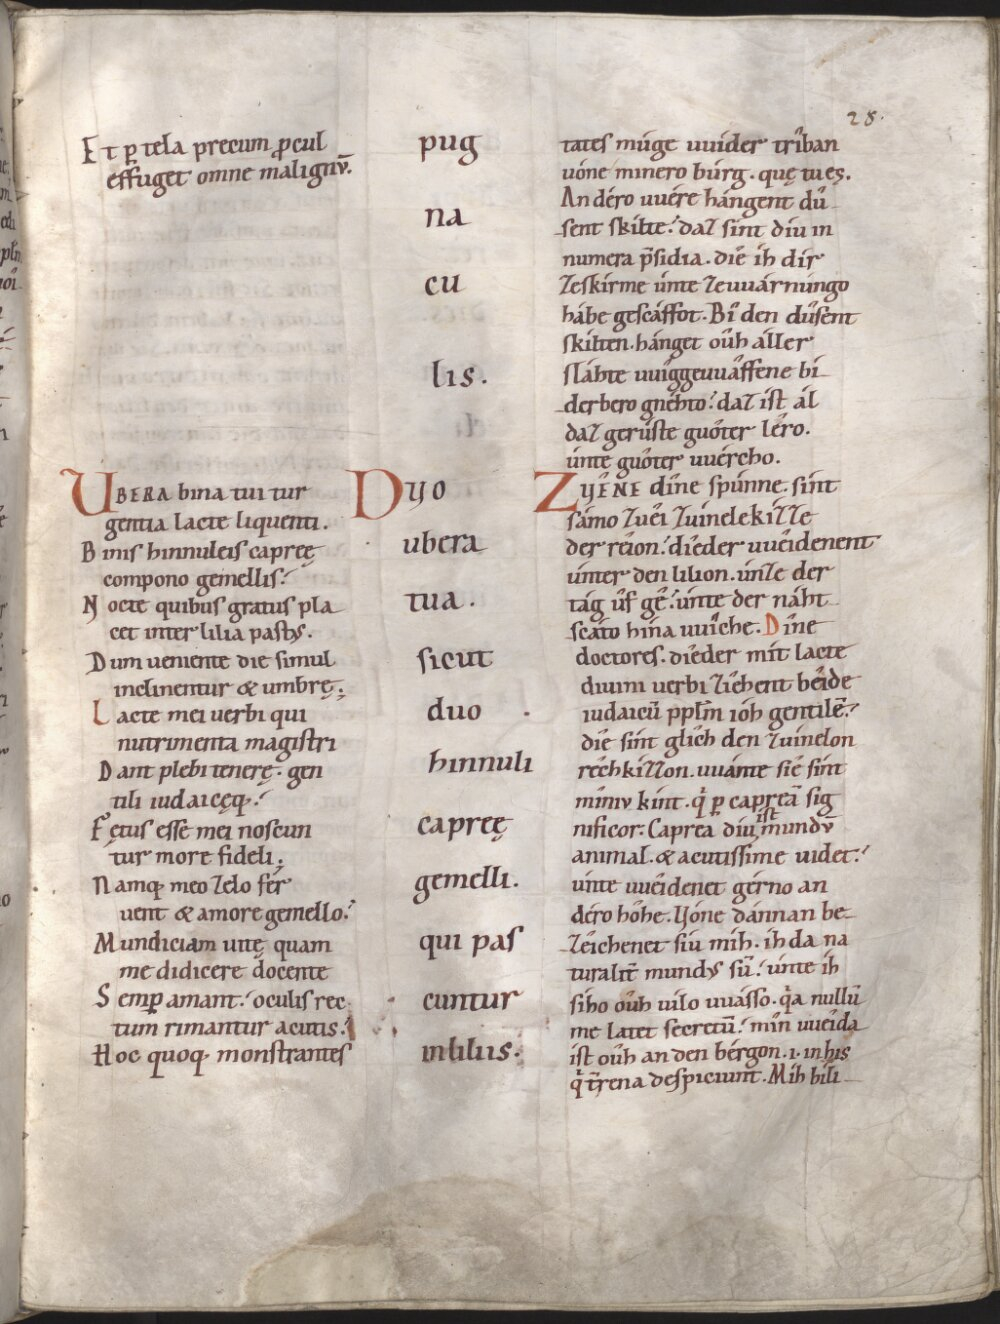 28.
Et ꝑ tela precum ꝓcul
effuget omne malignū.
UBERA bina tui tur
gentia lacte liquenti.
Binis hinnuleis capreę
compono gemellis.
Nocte quibus gratus pla
cet inter lilia pastus.
Dum ueniente die simul
inclinentur & umbrę.
Lacte mei uerbi qui
nutrimenta magistri
Dant plebi tenerę. gen
tili iudaicęq;.
Fętus esse mei noscun
tur more fideli.
Namq; meo zelo fer
uent & amore gemello.
Mundiciam uitę quam
me didicere docente
Semꝑ amant. oculis rec
tum rimantur acutis.
Hoc quoq; monstrantes
pug
na
cu
lis.
Duo
ubera
tua.
sicut
duo
hinnuli
capreę
gemelli.
qui pas
cuntur
in liliis.
tates múge uuíder tríban
uóne mínero búrg. quę tu es.
An déro uuére hángent dû
sent skilte. daz sint diu in
numera p̄sidia. die ih dir
zeskírme únte zeuuárningo
hábe gescáffot. Bî den dûsent
skilten. hánget oûh áller
slábte uuîggeuuâffene bi
derbero gnéhto. daz ist ál
daz gerúste guôter léro.
únte guóter uuércho.
Zuêne dîne spúnne. sínt
sámo zuêi zuinelekízze
der rêion. diêder uuêidenent
únter den lilion. únze der
tág ûf gê. únte der náht
scáto hína uuîche. Dîne
doctores. diêder mit lacte
diuini uerbi ziêhent bêide
iudaicū pplm̄ ióh gentilē.
diê sint glîch den zuinelon
rêchkizzon. uuánte siê sint
mîniu kint. q̇ ꝑ capreā sig
nificor. Caprea diu ist mundū
animal. & acutissime uidet.
únte uuêidenet gérno an
déro hôhe. Uóne dánnan be
zêichenet siu mih. ih da na
turalit̄ mundus sū. únte ih
siho oûh uilo uuásso. q̇a nullū
me latet secretū. mîn uuêida
ist oûh an den bérgon. i. in his
q̇ t̄rena despiciunt. Mih bili